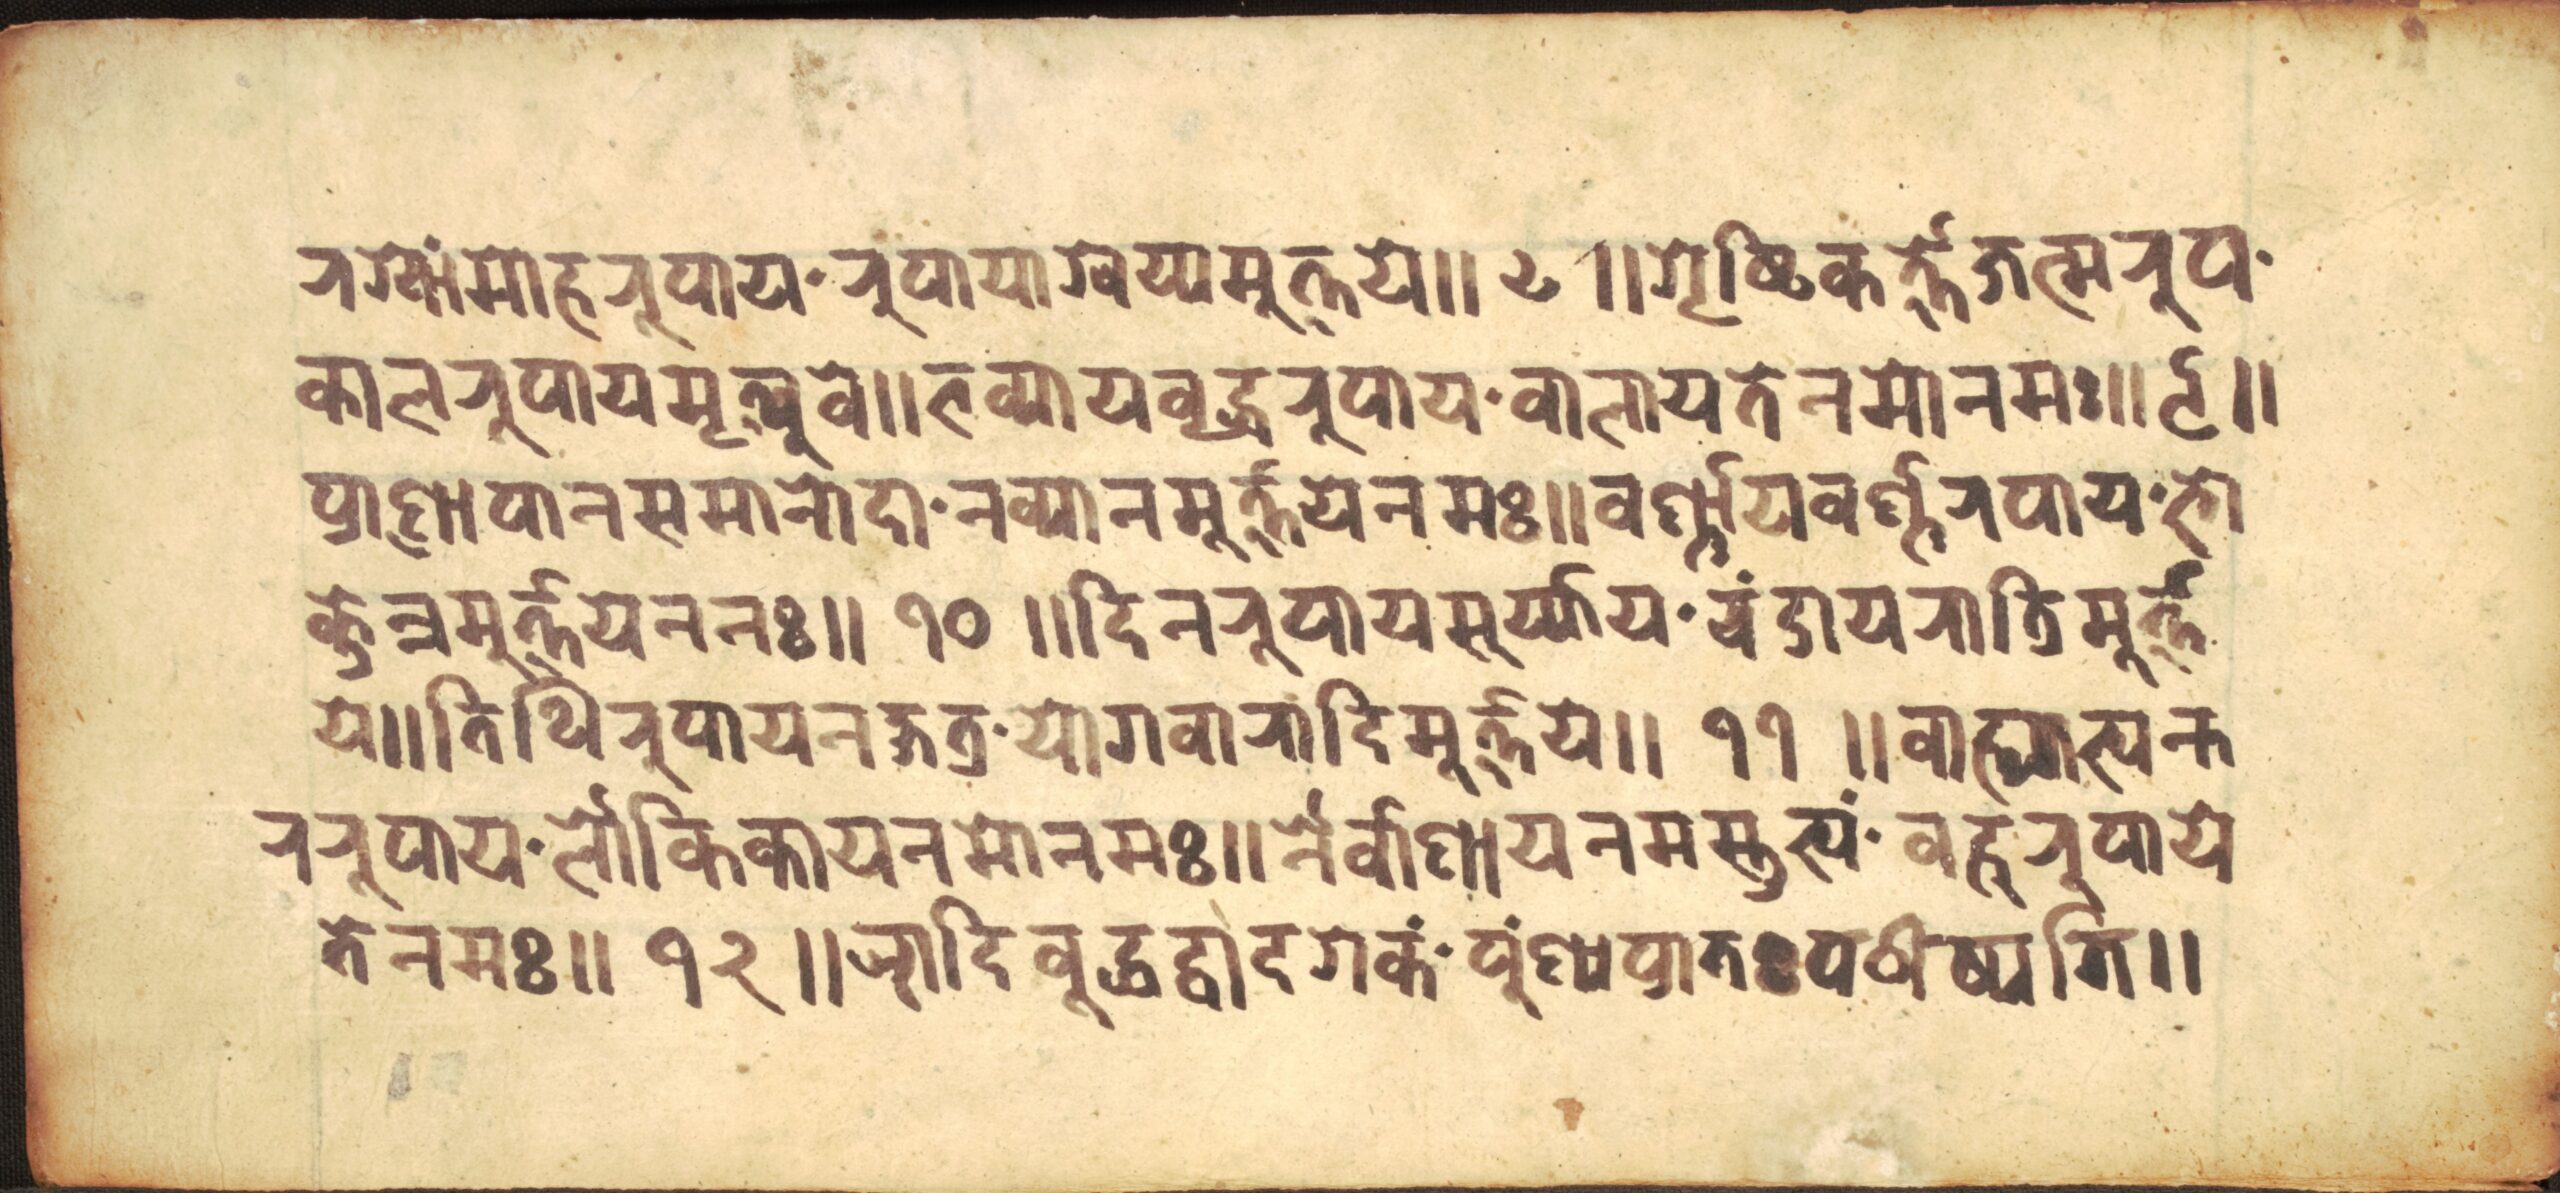 रक्षां मोहरूपाय· रूपायाख्येय्यमुर्त्तये॥ ८ ॥शृष्टिकर्त्तृे जत्मरूप·
कालरूपाय मृत्युवे॥भव्याय वृद्धरूपाय· वालाय ते नमो नमः॥ ९॥
प्राणापानसमानोदा· नव्यानमूर्त्तये नमः॥वर्ण्णाय वर्ण्णरपाय· भो
क्तेन्नमुर्त्तये ननः॥ १० ॥दिनरूपाय सूर्य्याय· चंद्राय रात्रिमूर्त्त
ये॥तिथिरूपाय नक्षत्र· योगवारादिमूर्त्तये॥ ११ ॥वाह्याभ्यन्त
ररूपाय· लौकिकाय नमो नमः॥नैर्वाणाय नमस्तुभ्यं· वहुरूपाये
ते नमः॥ १२ ॥आदिबूद्धद्वादशकं· पुंण्य प्रातः पठीष्यति॥